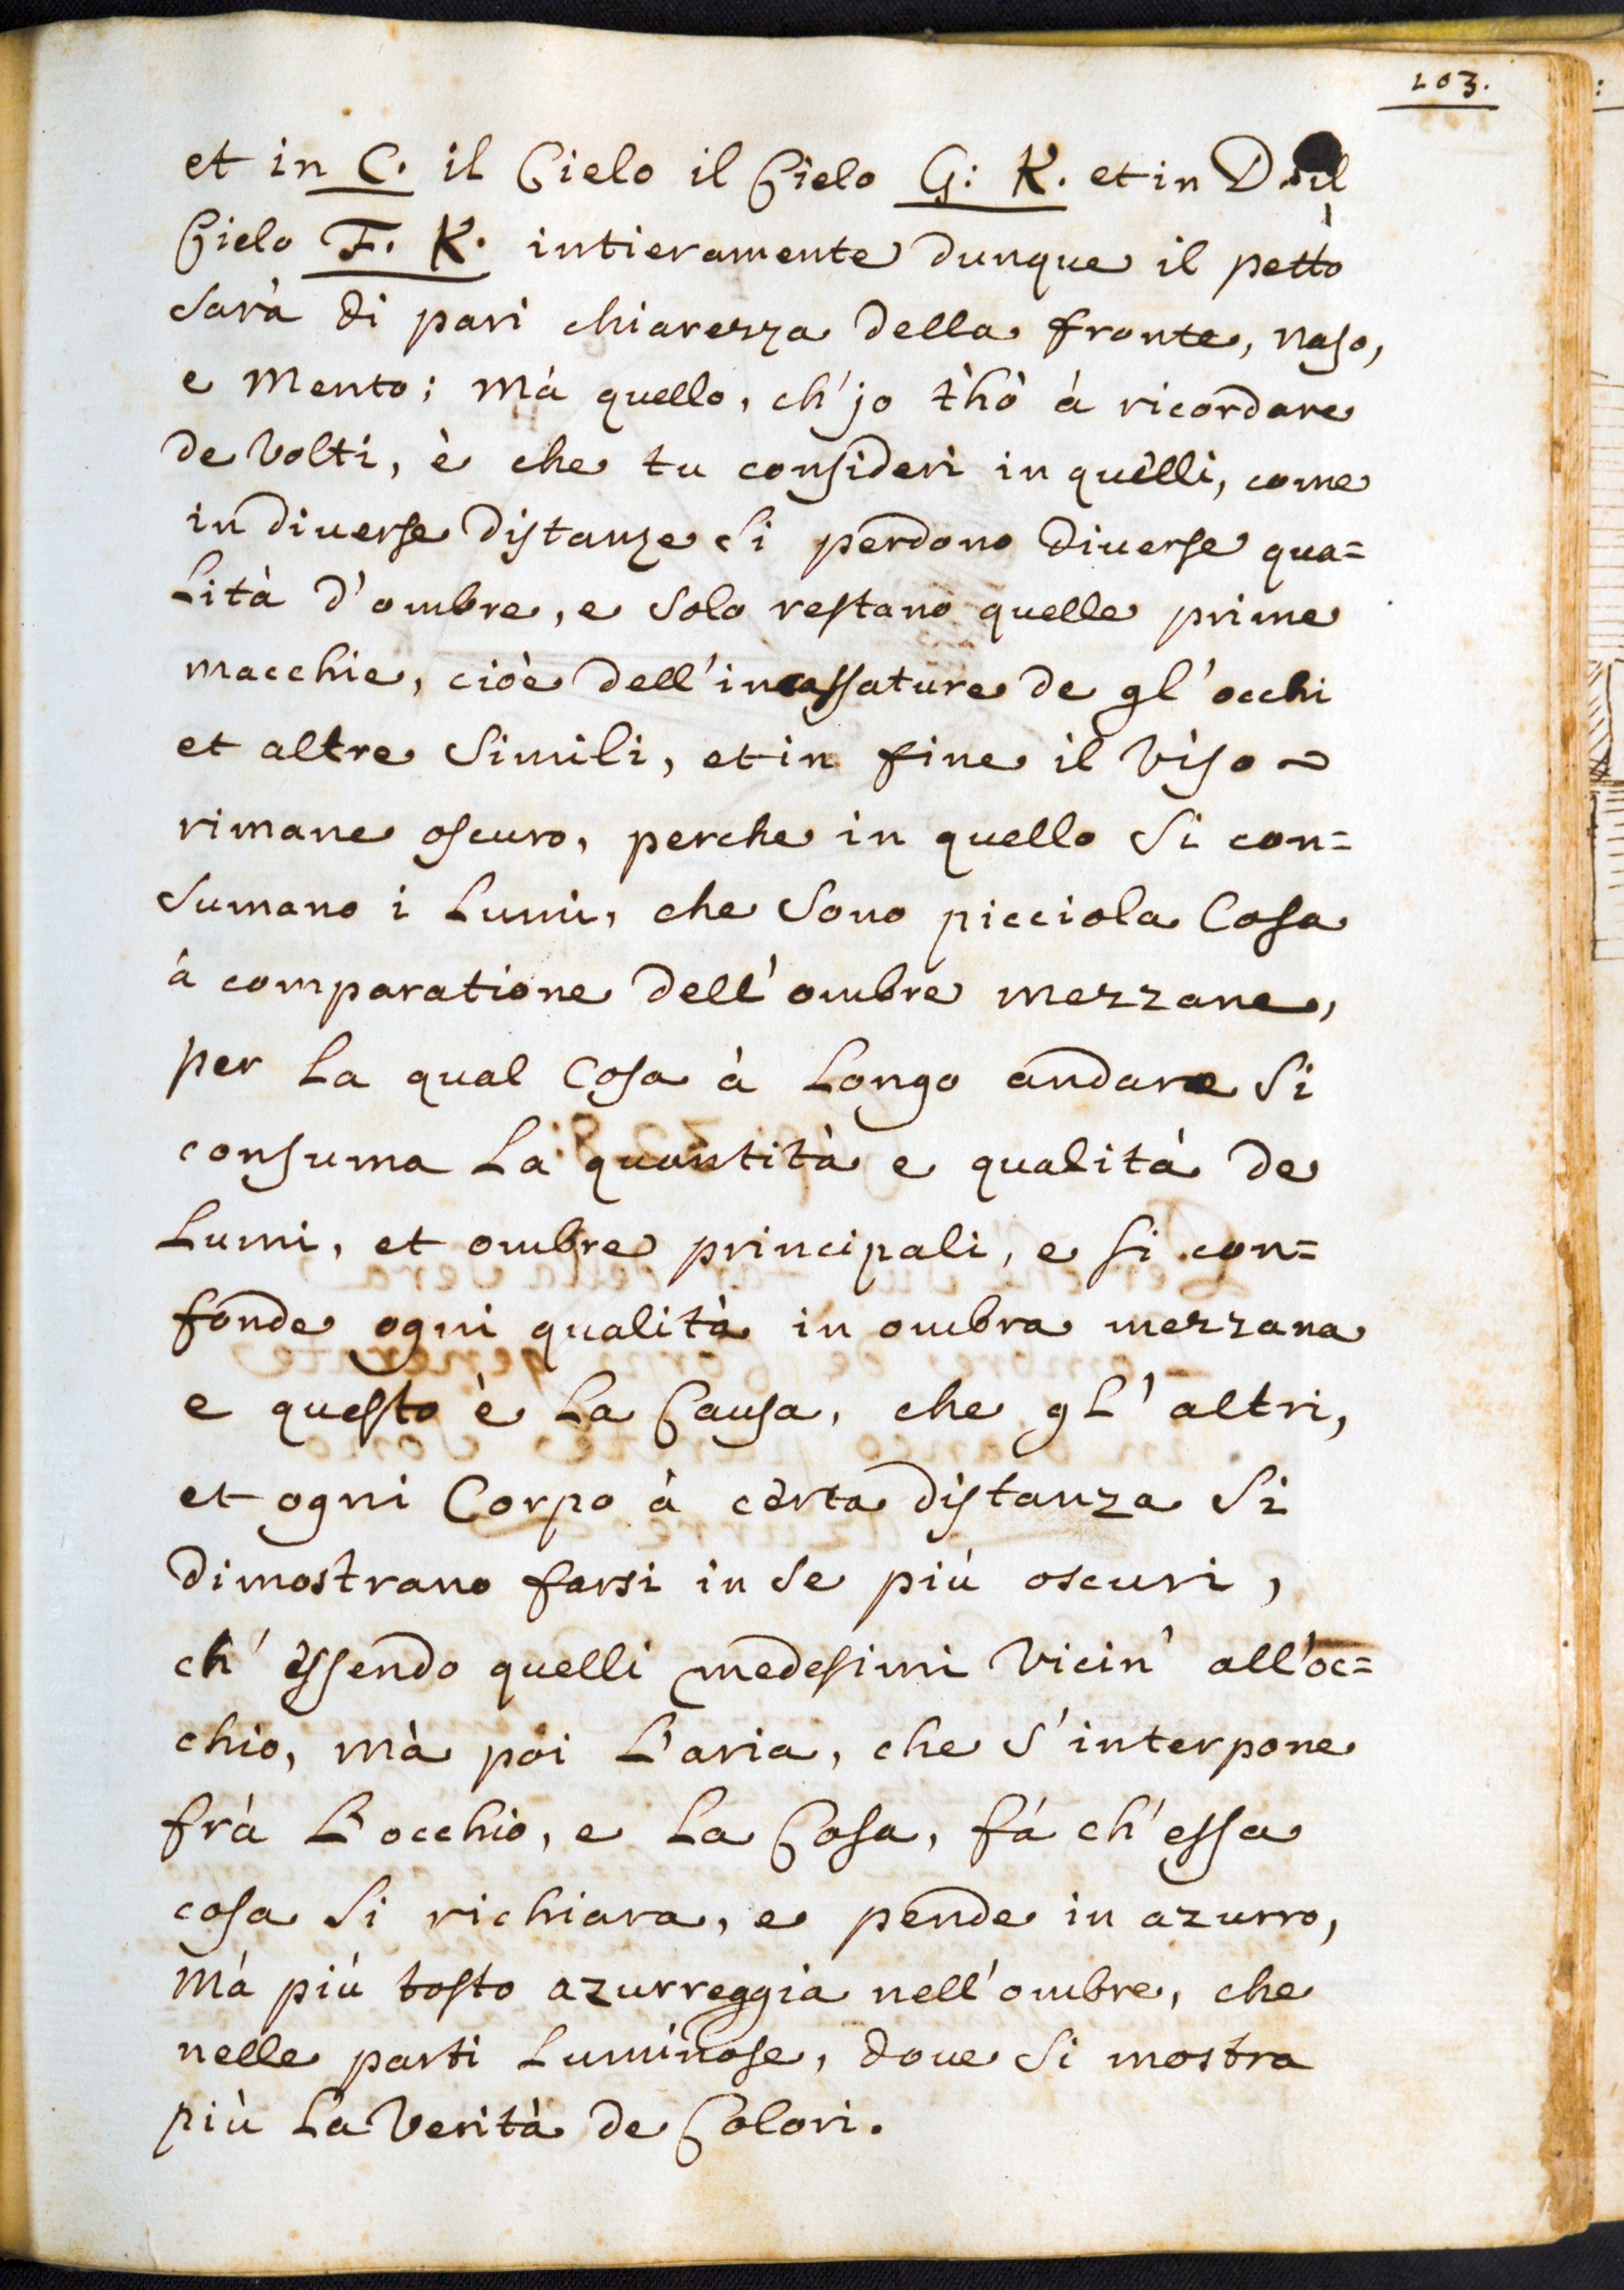 103.
et in C. il Cielo il Cielo G: K. et in D. il
Cielo F. K. intieramente dunque il petto
sarà di pari chiarezza della fronte, naso,
e mento; mà quello, ch'jo t'hò à ricordare
de volti, è che tu consideri in quelli, come
in diuerse distanze si perdono diuerse qua=
lità d'ombre, e solo restano quelle prime
macchie, cioè dell'incassature de gl'occhi
et altre simili, et in fine il viso ~
rimane oscuro, perche in quello si con=
sumano i lumi, che sono picciola cosa
à comparatione dell'ombre mezzane,
per la qual cosa à longo andare si
consuma la quantità e qualità de
lumi, et ombre principali, e si con=
fonde ogni qualità in ombra mezzana
e questo è la Causa, che gl'altri,
et ogni Corpo à certa distanza si
dimostrano farsi in se più oscuri,
ch'essendo quelli medesimi vicin' all'oc=
chio, mà poi l'aria, che s'interpone
frà l'occhio, e la Cosa, fà ch'essa
cosa si richiara, e pende in azurro,
mà più tosto azurreggia nell'ombre, che
nelle parti luminose, doue si mostra
più la verità de Colori.